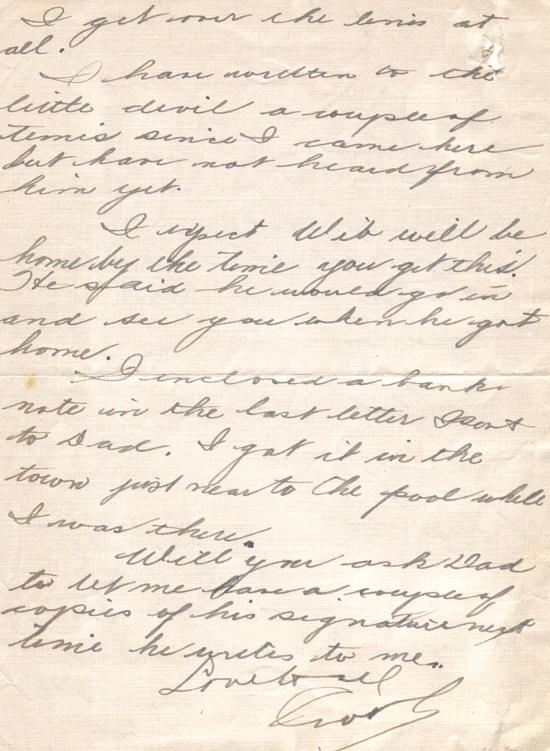 I get over the lines at
all.
I have written to the
little devil a couple of
times since I came here
but have not heard from
him yet.
I expect Wib will be
home by the time you get this.
He said he would go in
and see you when he got
home.
I inclosed a bank
note in the last letter I sent
to Dad. I got it in the
town just near to the pool while
I was there.
Will you ask Dad
to let me have a couple of
copies of his signature next
time he writes to me.
Love to all